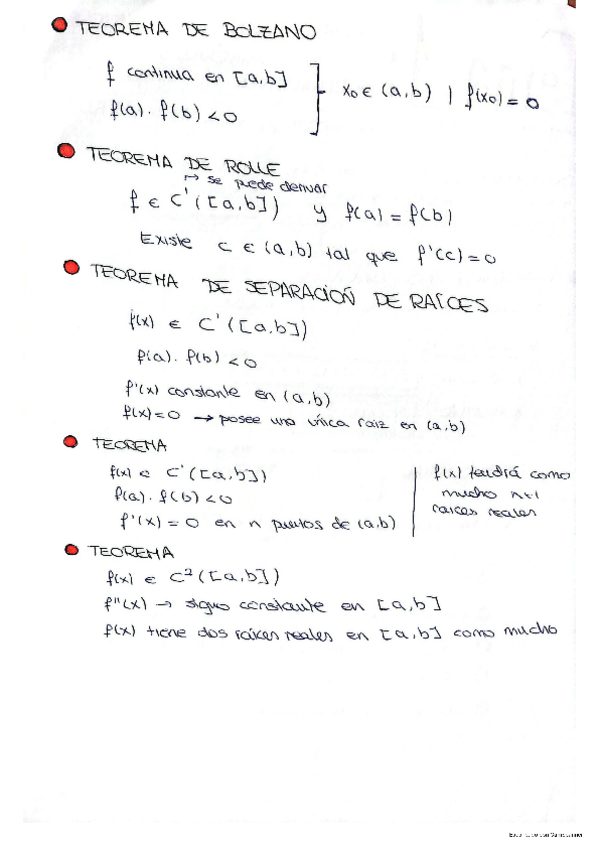 TEOREMA DE BOLZANO
f continua en [a,b]
f(a). f(b) < 0
x₀ ∈ (a,b) | f(x₀) = 0
TEOREMA DE ROLLE
↦ se puede derivar
f ∈ C'([a,b]) y f(a) = f(b)
Existe c ∈ (a,b) tal que f'(c) = 0
TEOREMA DE SEPARACIÓN DE RAÍCES
f(x) ∈ C'([a,b])
f(a). f(b) < 0
f'(x) constante en (a,b)
f(x) = 0 → posee una única raiz en (a,b)
TEOREMA
f(x) ∈ C'([a,b])
f(a). f(b) < 0
f'(x) = 0 en n puntos de (a,b)
f(x) tendrá como
mucho n+1
raíces reales
TEOREMA
f(x) ∈ C²([a,b])
f''(x) → signo constante en [a,b]
f(x) tiene dos raíces reales en [a,b] como mucho